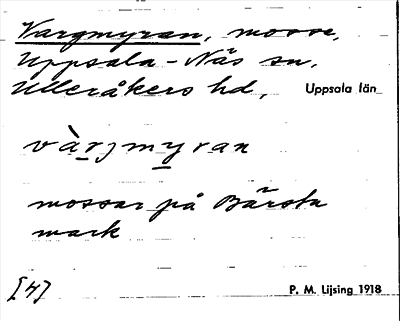 Vargmyran, mosse,
Uppsala-Näs sn,
Ulleråkers hd, Uppsala län
vàrjmyran
mossar på Bärsta
mark
[4] P. M. Lijsing 1918